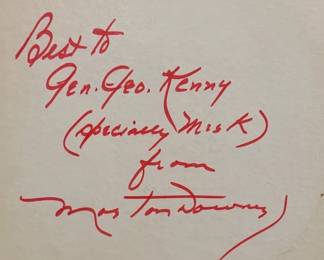 Best to
Gen. Geo. Kenny
(specially Mrs K)
from
Morton Downey